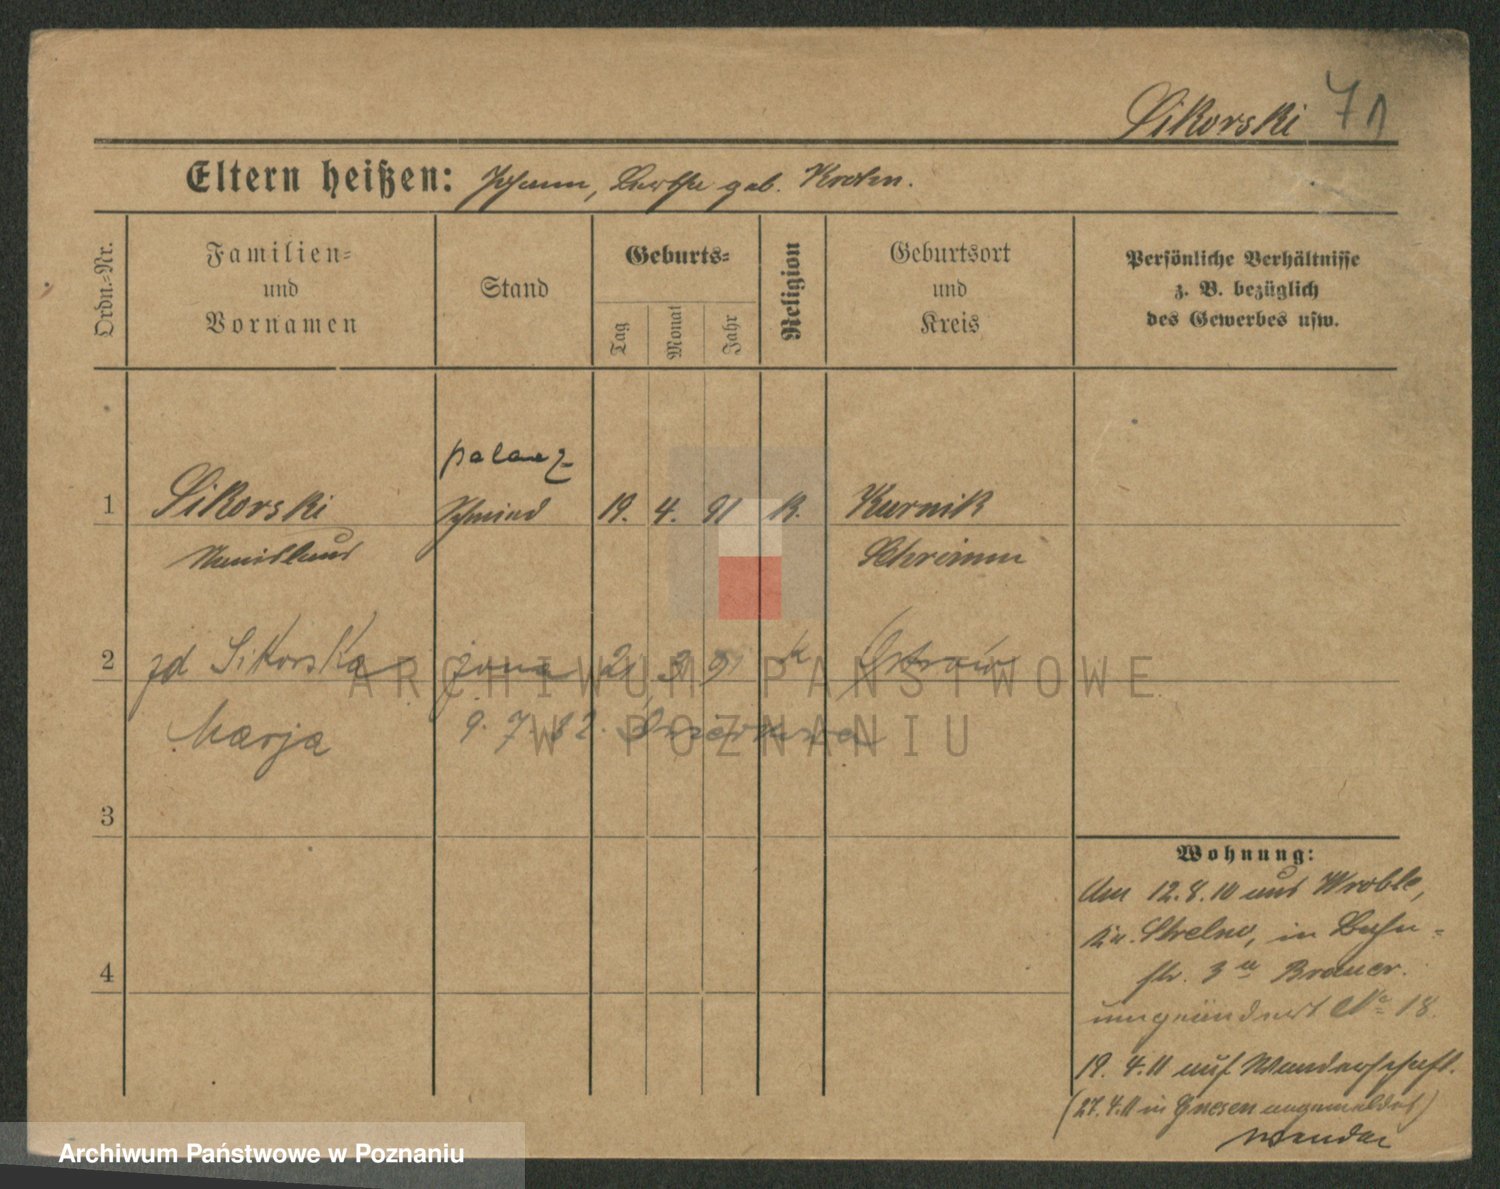 Sikorski 71
Eltern heißen: Johann, Bertha geb. Krohn.
Ordn.-Nr.
Familien- und Vornamen
Stand
Geburts-
Tag
Monat
Jahr
Religion
Geburtsort und Kreis
Persönliche Verhältnisse
z. B. bezüglich
des Gewerbes usw.
palacz
1 Sikorski Schmied 19. 4. 91 K. Kurnik
Stanislaus Schrimm
2 zd Sikorska żona 21 3 91 K Ostrów
Marja 9. 7. 82.
3
4
Wohnung:
Am 12.8.10 aus Wroble,
Kr. Strelno, in Bahn-
str. 3 a Brauer.
umgeändert No 18.
19. 4. 11 auf Wanderschaft.
(27.4.11 in Gnesen angemeldet)
ARCHIWUM PAŃSTWOWE
W POZNANIU
Archiwum Państwowe w Poznaniu